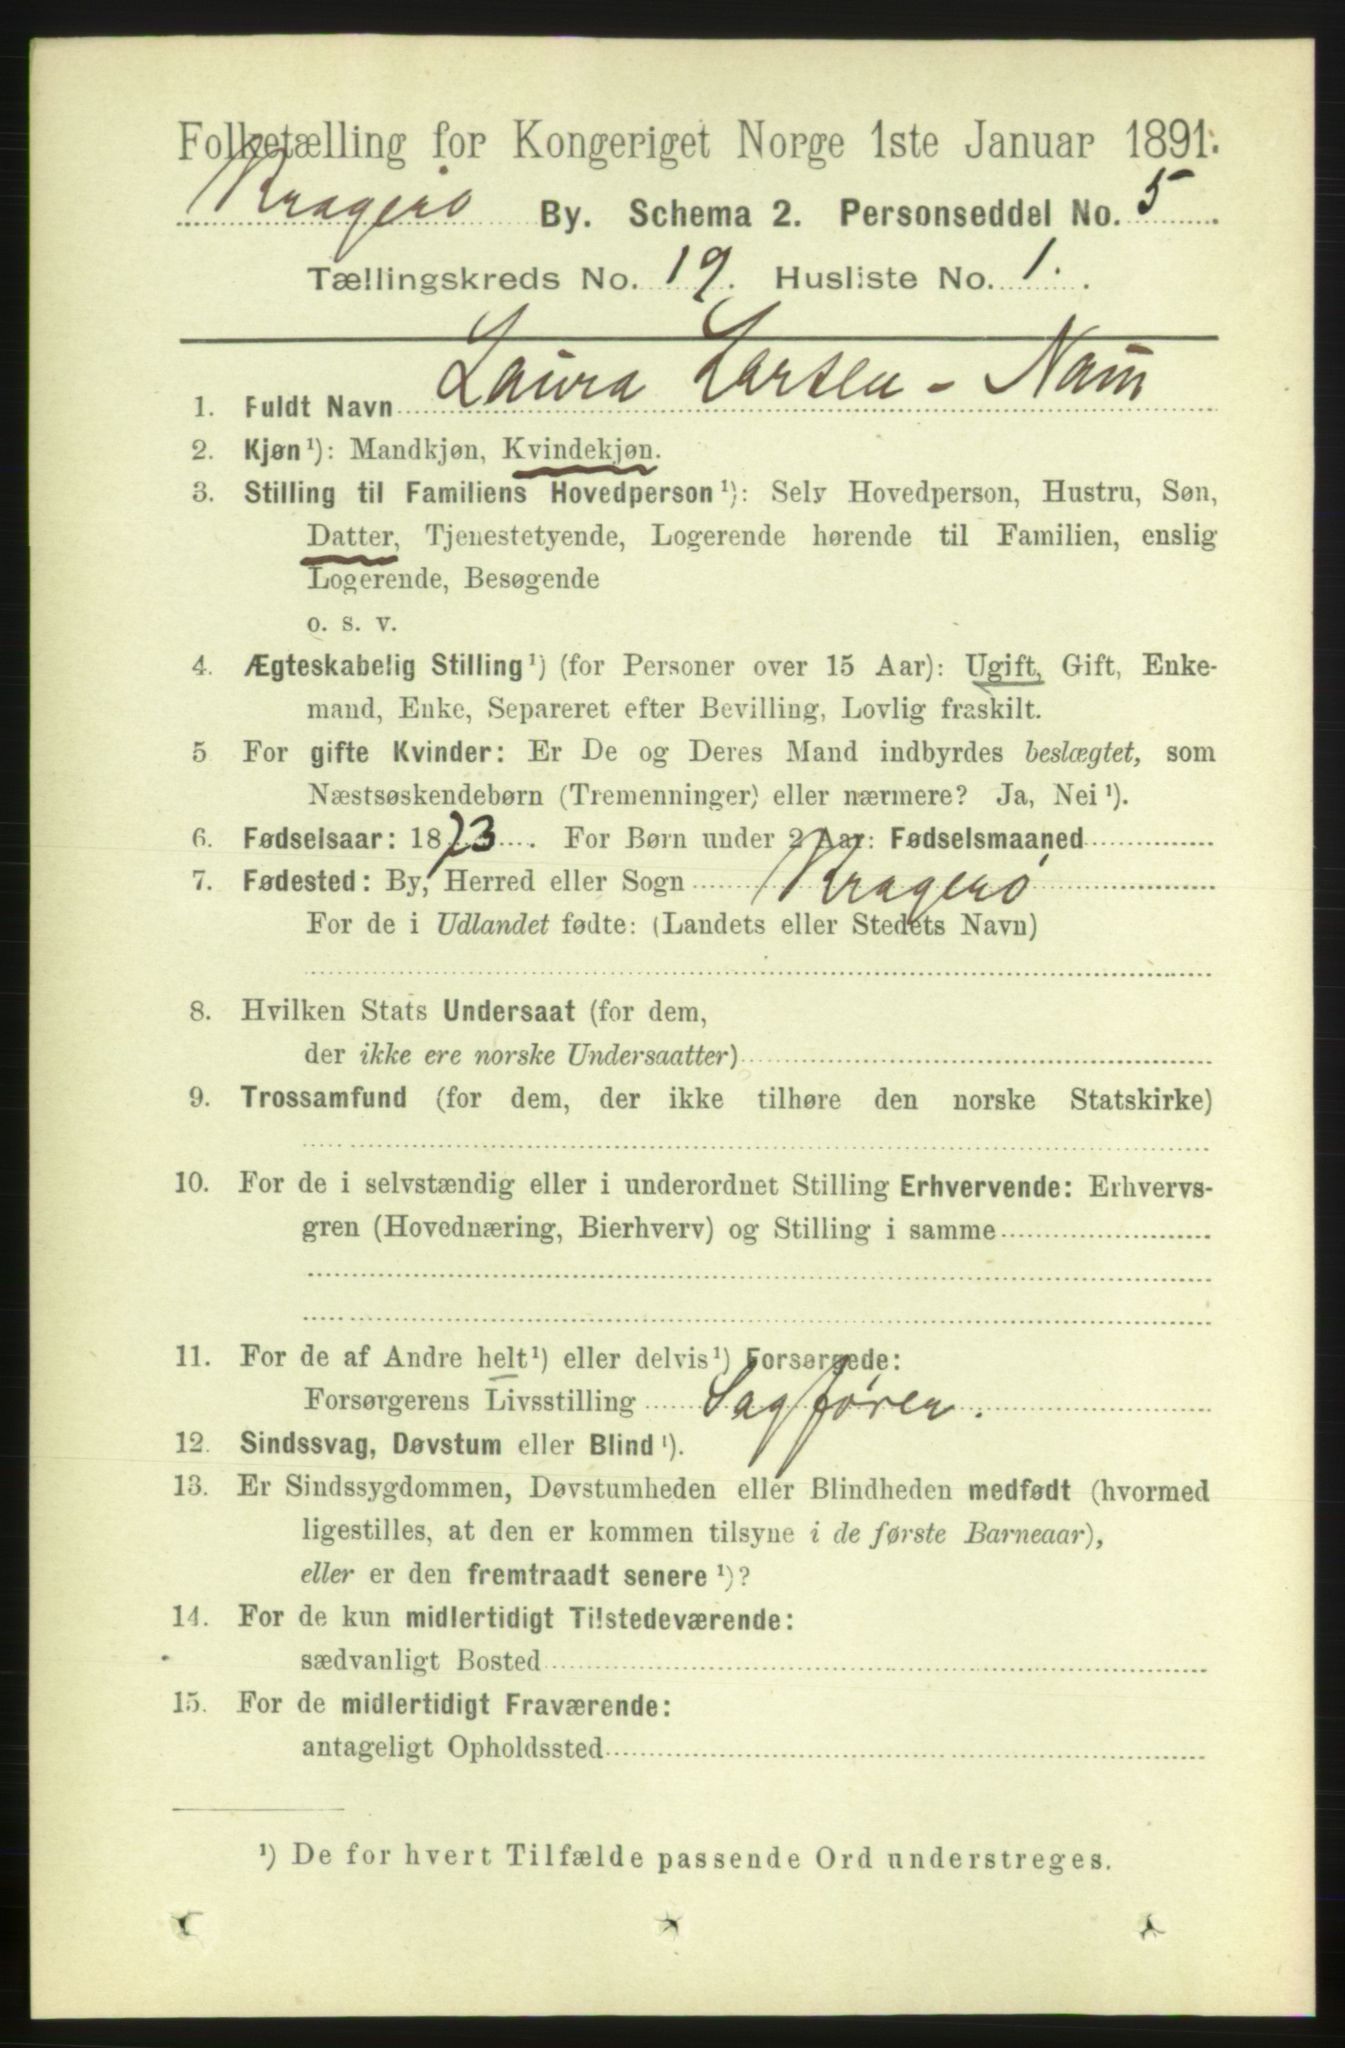 Folketælling for Kongeriget Norge 1ste Januar 1891.
Kragerø By. Schema 2. Personseddel No. 5.
Tællingskreds No. 19. Husliste No. 1.
1. Fuldt Navn Laura Larsen - Næm
2. Kjøn ¹): Mandkjøn, Kvindekjøn.
3. Stilling til Familiens Hovedperson ¹): Selv Hovedperson, Hustru, Søn,
Datter, Tjenestetyende, Logerende hørende til Familien, enslig
Logerende, Besøgende
o. s. v.
4. Ægteskabelig Stilling ¹) (for Personer over 15 Aar): Ugift, Gift, Enke-
mand, Enke, Separeret efter Bevilling, Lovlig fraskilt.
5 For gifte Kvinder: Er De og Deres Mand indbyrdes beslægtet, som
Næstsøskendebørn (Tremenninger) eller nærmere? Ja, Nei ¹).
6. Fødselsaar: 1873. For Børn under 2 Aar: Fødselsmaaned
7. Fødested: By, Herred eller Sogn Kragerø
For de i Udlandet fødte: (Landets eller Stedets Navn)
8. Hvilken Stats Undersaat (for dem,
der ikke ere norske Undersaatter)
9. Trossamfund (for dem, der ikke tilhøre den norske Statskirke)
10. For de i selvstændig eller i underordnet Stilling Erhvervende: Erhvervs-
gren (Hovednæring, Bierhverv) og Stilling i samme
11. For de af Andre helt ¹) eller delvis ¹) Forsørgede:
Forsørgerens Livsstilling Sagfører.
12. Sindssvag, Døvstum eller Blind ¹).
13. Er Sindssygdommen, Døvstumheden eller Blindheden medfødt (hvormed
ligestilles, at den er kommen tilsyne i de første Barneaar),
eller er den fremtraadt senere ¹)?
14. For de kun midlertidigt Tilstedeværende:
sædvanligt Bosted
15. For de midlertidigt Fraværende:
antageligt Opholdssted
¹) De for hvert Tilfælde passende Ord understreges.